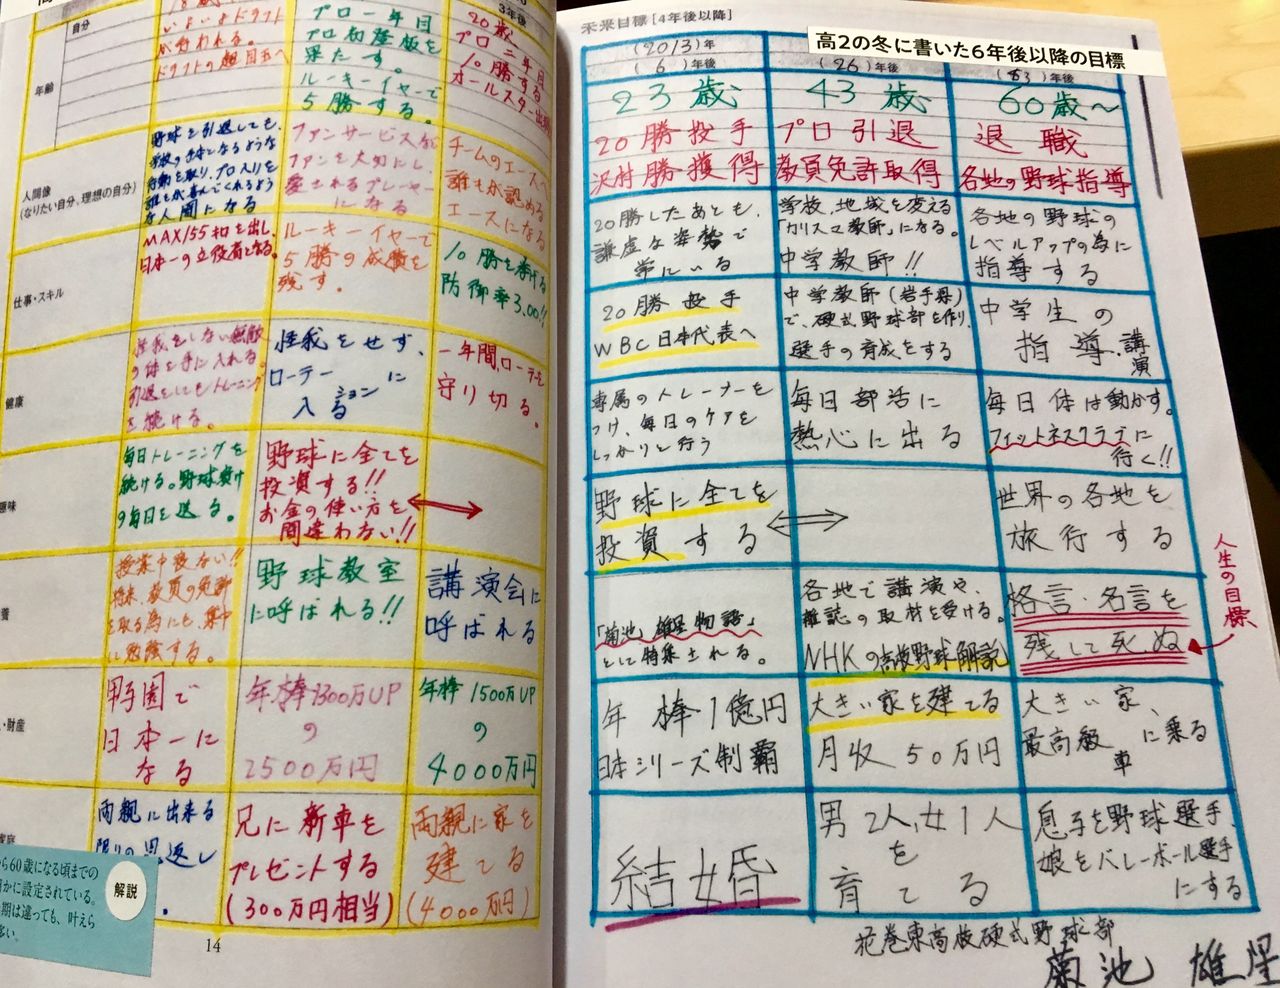 3年後
自分
年齢
いよいよドラフト
が行われる。
プロ一年目
プロ初登板を
果たす。
ルーキーイヤーで
5勝する。
20歳
プロ二年目
10勝する
人間像
(なりたい自分、理想の自分)
野球を引退しても、
な人間になる
ファンサービスなど
ファンを大切にし、
愛されるプレーヤー
になる
チームのエースへ
誰もが認める
エースになる
仕事・スキル
MAX155キロを出し、
日本一の立役者となる。
ルーキーイヤーで
5勝の成績を
残す。
10勝を挙げる
防御率3.00!!
健康
怪我をしない無敵
の体を手に入れる。
引退をしてもトレーニング
を続ける。
怪我をせず、
ローテーションに
入る
一年間、ローテを
守り切る。
趣味
毎日トレーニングを
続ける。野球漬け
の毎日を送る。
野球に全てを
投資する!!
お金の使い方を
間違わない!!
養
授業中寝ない!!
将来、教員の免許
を取る為にも、集中
に勉強する。
野球教室
に呼ばれる!!
講演会に
呼ばれる
・財産
甲子園で
日本一に
なる
年棒1300万UP
の
2500万円
年棒1500万UP
の
4000万円
家庭
両親に出来る
限りの恩返し
兄に新車を
プレゼントする
(300万円相当)
両親に家を
建てる
(4000万円)
ら60歳になる頃までの
確かに設定されている。
期は違っても、叶えら
多い。
解説
14
未来目標[4年後以降]
高2の冬に書いた6年後以降の目標
(2013)年
(6)年後
(26)年後
年後
23歳
43歳
60歳〜
20勝投手
沢村勝獲得
プロ引退
教員免許取得
退職
各地の野球指導
20勝したあとも、
謙虚な姿勢で
常にいる
学校、地域を変える
「カリスマ教師」になる。
中学教師!!
各地の野球の
レベルアップの為に
指導する
20勝投手
WBC日本代表へ
中学教師(岩手県)
で、硬式野球部を作り、
選手の育成をする
中学生の
指導・講演
専属のトレーナーを
つけ、毎日のケアを
しっかりと行う
毎日部活に
熱心に出る
毎日体は動かす。
フィットネスクラブに
行く!!
野球に全てを
投資する
世界の各地を
旅行する
「菊池雄星物語」
として特集される。
各地で講演や、
雑誌の取材を受ける。
NHKの高校野球解説
格言・名言を
残して死ぬ
人生の目標
年棒1億円
日本シリーズ制覇
大きい家を建てる
月収50万円
大きい家、
最高級車に乗る
結婚
男2人、女1人
を
育てる
息子を野球選手、
娘をバレーボール選手
にする
花巻東高校硬式野球部
菊池 雄星